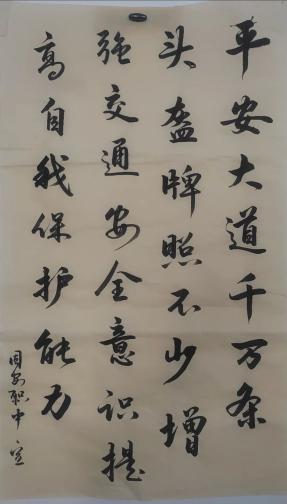 平安大道千万条
头盔牌照不少增
强交通安全意识提
高自我保护能力
职中